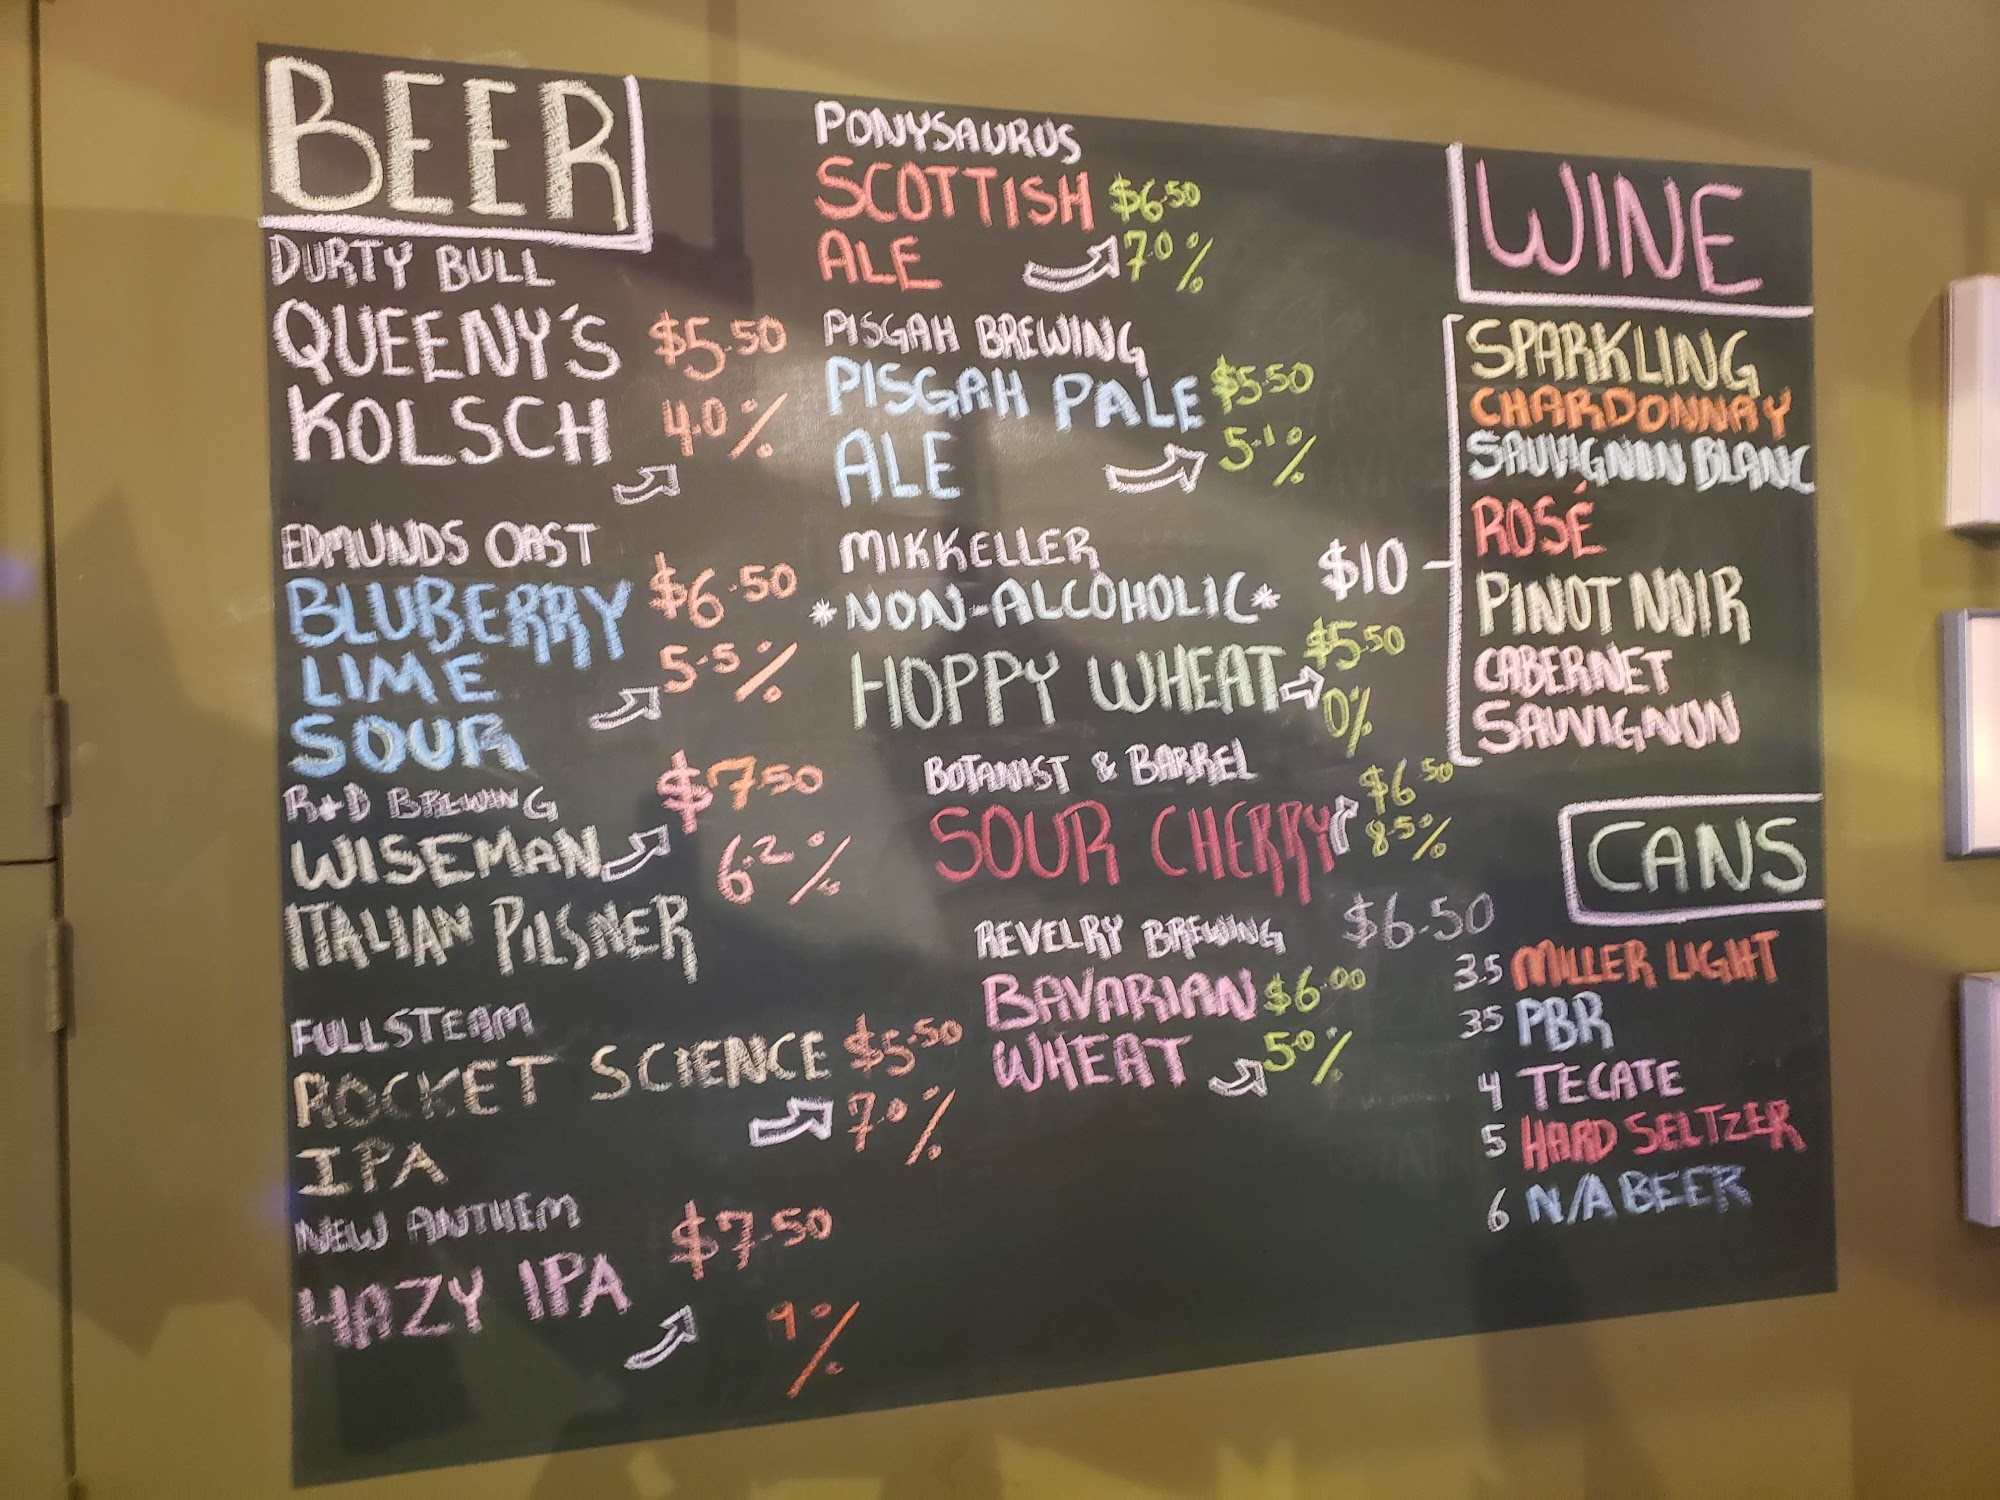 BEER
DURTY BULL
QUEENY'S $5.50
KOLSCH 4.0%
EDMUNDS OAST
BLUBERRY $6.50
LIME 5.5%
SOUR
R+D BREWING $7.50
WISEMAN 6.2%
ITALIAN PILSNER
FULLSTEAM
ROCKET SCIENCE $5.50
IPA 7.0%
NEW ANTHEM $7.50
HAZY IPA
9%
PONYSAURUS
SCOTTISH $6.50
ALE 7.0%
PISGAH BREWING
PISGAH PALE $5.50
ALE 5.1%
MIKKELLER
*NON-ALCOHOLIC*
HOPPY WHEAT $5.50
0%
BOTANIST & BARREL $6.50
SOUR CHERRY 8.5%
REVELRY BREWING $6.50
BAVARIAN $6.00
WHEAT 5.0%
WINE
SPARKLING
CHARDONNAY
SAUVIGNON BLANC
$10 ROSÉ
PINOT NOIR
CABERNET
SAUVIGNON
CANS
3.5 MILLER LIGHT
35 PBR
4 TECATE
5 HARD SELTZER
6 N/A BEER